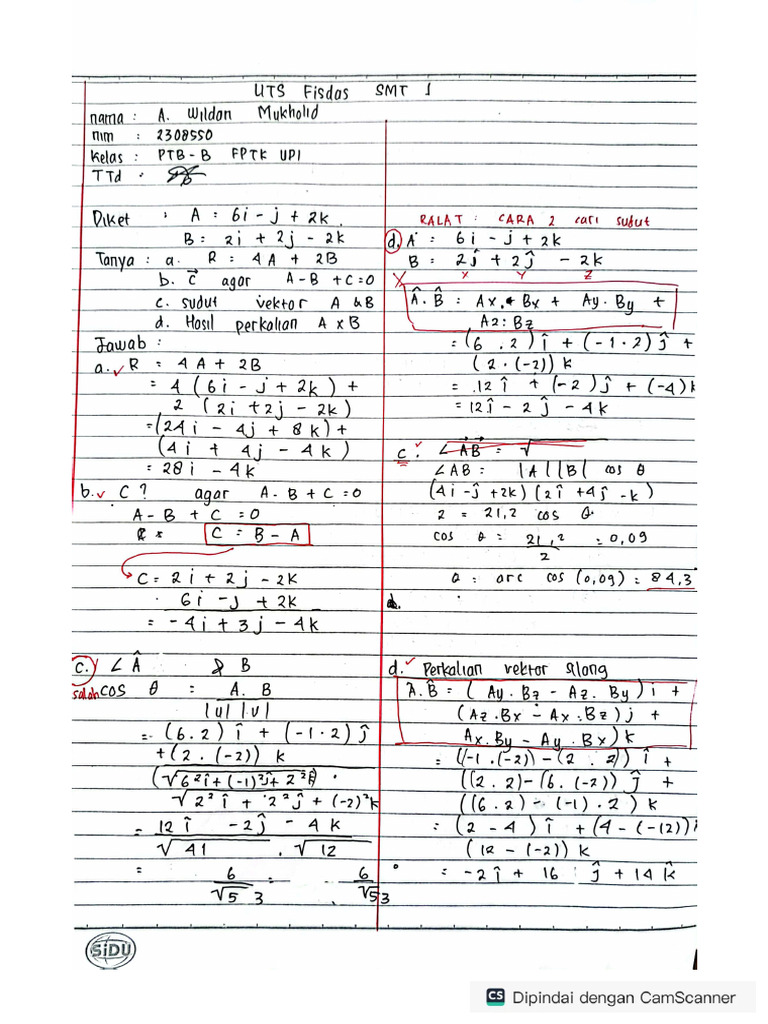 UTS Fisdas SMT 1
nama : A. Wildan Mukholid
nim : 2308550
Kelas : PTB-B FPTK UPI
TTd :
Diket : A = 6i - j + 2k
B = 2i + 2j - 2k
Tanya : a. R = 4A + 2B
b. C⃗ agar A-B+C=0
c. sudut vektor A & B
d. Hasil perkalian A x B
Jawab :
a. ✓ R = 4A + 2B
= 4 (6i - j + 2k) +
2 (2i + 2j - 2k)
= (24i - 4j + 8k) +
(4i + 4j - 4k)
= 28i - 4k
b. ✓ C? agar A-B+C=0
A-B+C=0
C = B - A
C = 2i + 2j - 2k
6i - j + 2k
= -4i + 3j - 4k
c. ∠ Â & B
salah cos θ = A . B
|u| |v|
= (6.2) î + (-1.2) ĵ
+ (2.(-2)) k
(√6²î + (-1)²ĵ + 2²k̂) .
√2²î + 2²ĵ + (-2)²k
= 12 î - 2ĵ - 4k
√41 . √12
= 6 = 6
√53 √53
RALAT : CARA 2 cari sudut
d. A = 6i - j + 2k
B = 2ĵ + 2ĵ - 2k
x y z
X Â.B̂ = Ax . Bx + Ay . By +
Az . Bz
= (6 . 2) î + (-1.2) ĵ +
(2.(-2)) k
= 12 î + (-2) ĵ + (-4) k
= 12ĵ - 2ĵ - 4k
c. ✓ ∠A⃗B⃗ = √
∠AB = |A| |B| cos θ
(4i - ĵ + 2k) (2î + 4ĵ - k)
2 = 21,2 cos θ
cos θ = 21,2 = 0,09
2
a = arc cos (0,09) = 84,3
d. ✓ Perkalian vektor silang
Â.B̂ = (Ay.Bz - Az.By) i +
(Az.Bx - Ax.Bz) j +
Ax.By - Ay.Bx) k
= ((-1.(-2)) - (2.2)) î +
((2.2) - (6.(-2)) ĵ +
((6.2) - (-1).2) k
= (2 - 4) î + (4 - (-12)) ĵ
(12 - (-2)) k
= -2î + 16 ĵ + 14 k̂
SiDU
CS Dipindai dengan CamScanner